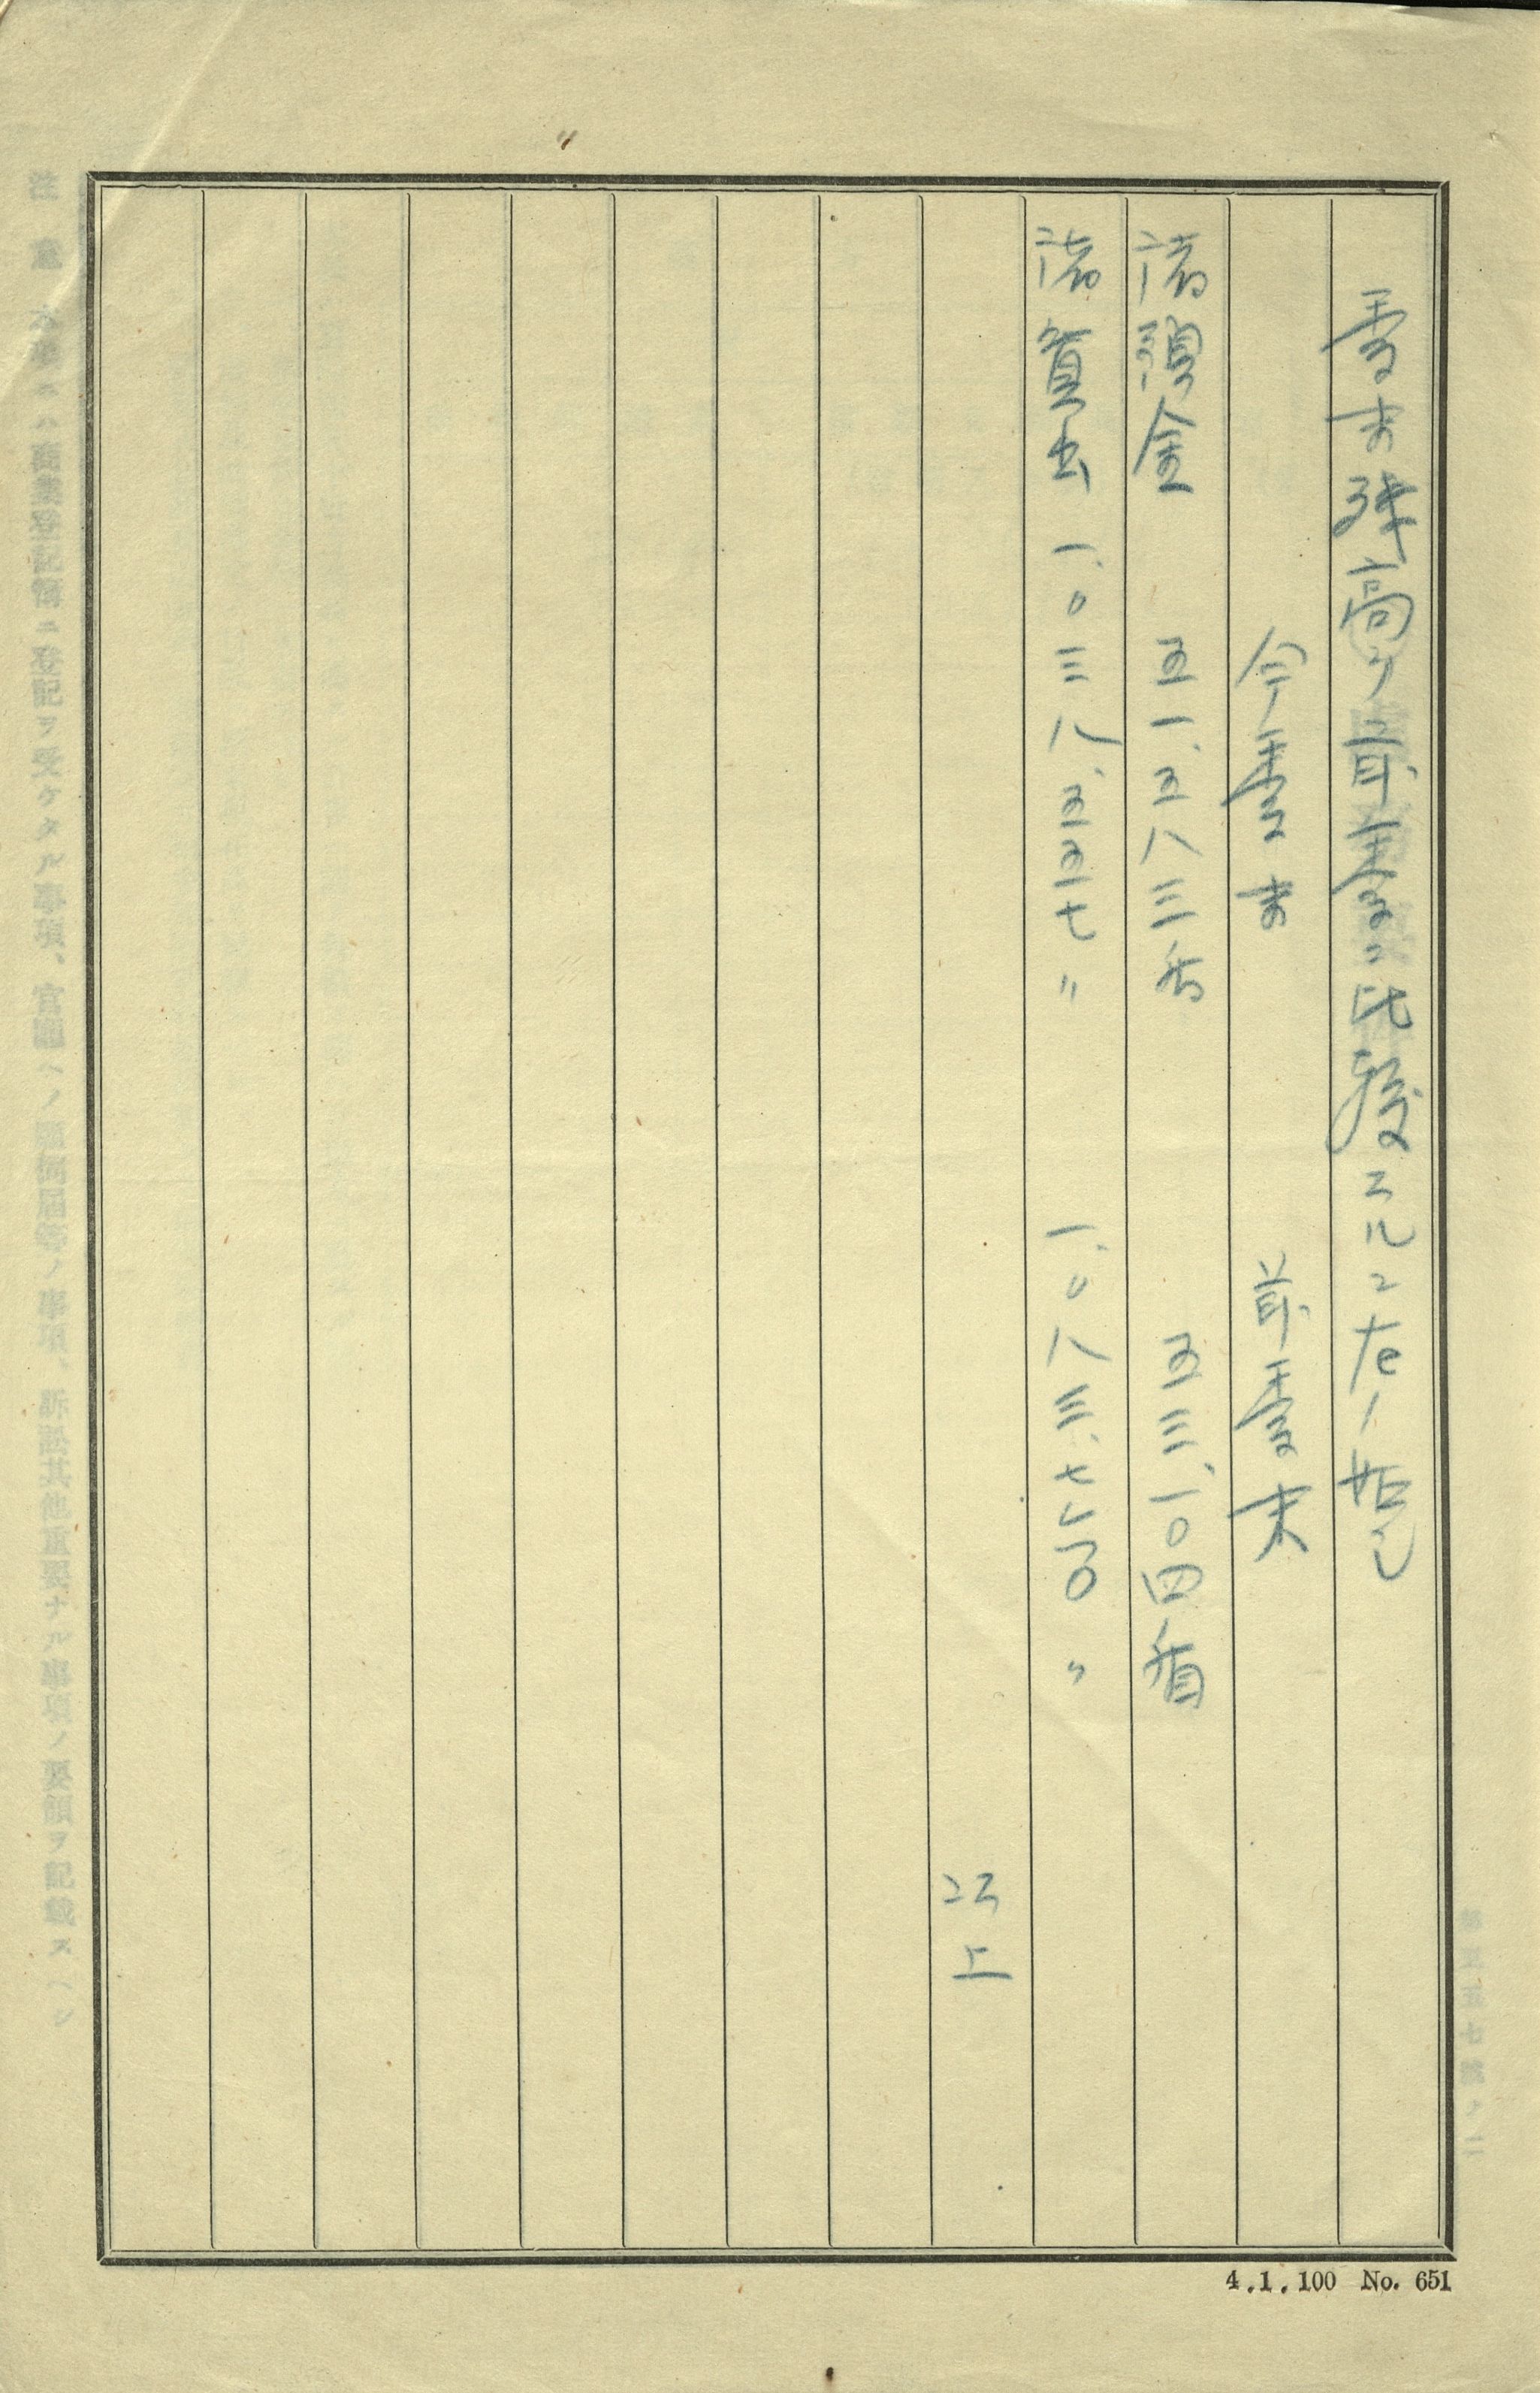 季末残高ヲ前季ニ比較スルニ左ノ如シ
今季末　前季末
諸預金　五一、五八三千円　五三、一〇四千円
諸貸出　一、〇三八、五五七〃　一、〇八三、七六〇〃
以上
注意　本帳ニハ商業登記簿ニ登記ヲ受ケタル事項、官廳ヘノ願伺届等ノ事項、訴訟其他重要ナル事項ノ要領ヲ記載スヘシ
4.1.100 No. 651